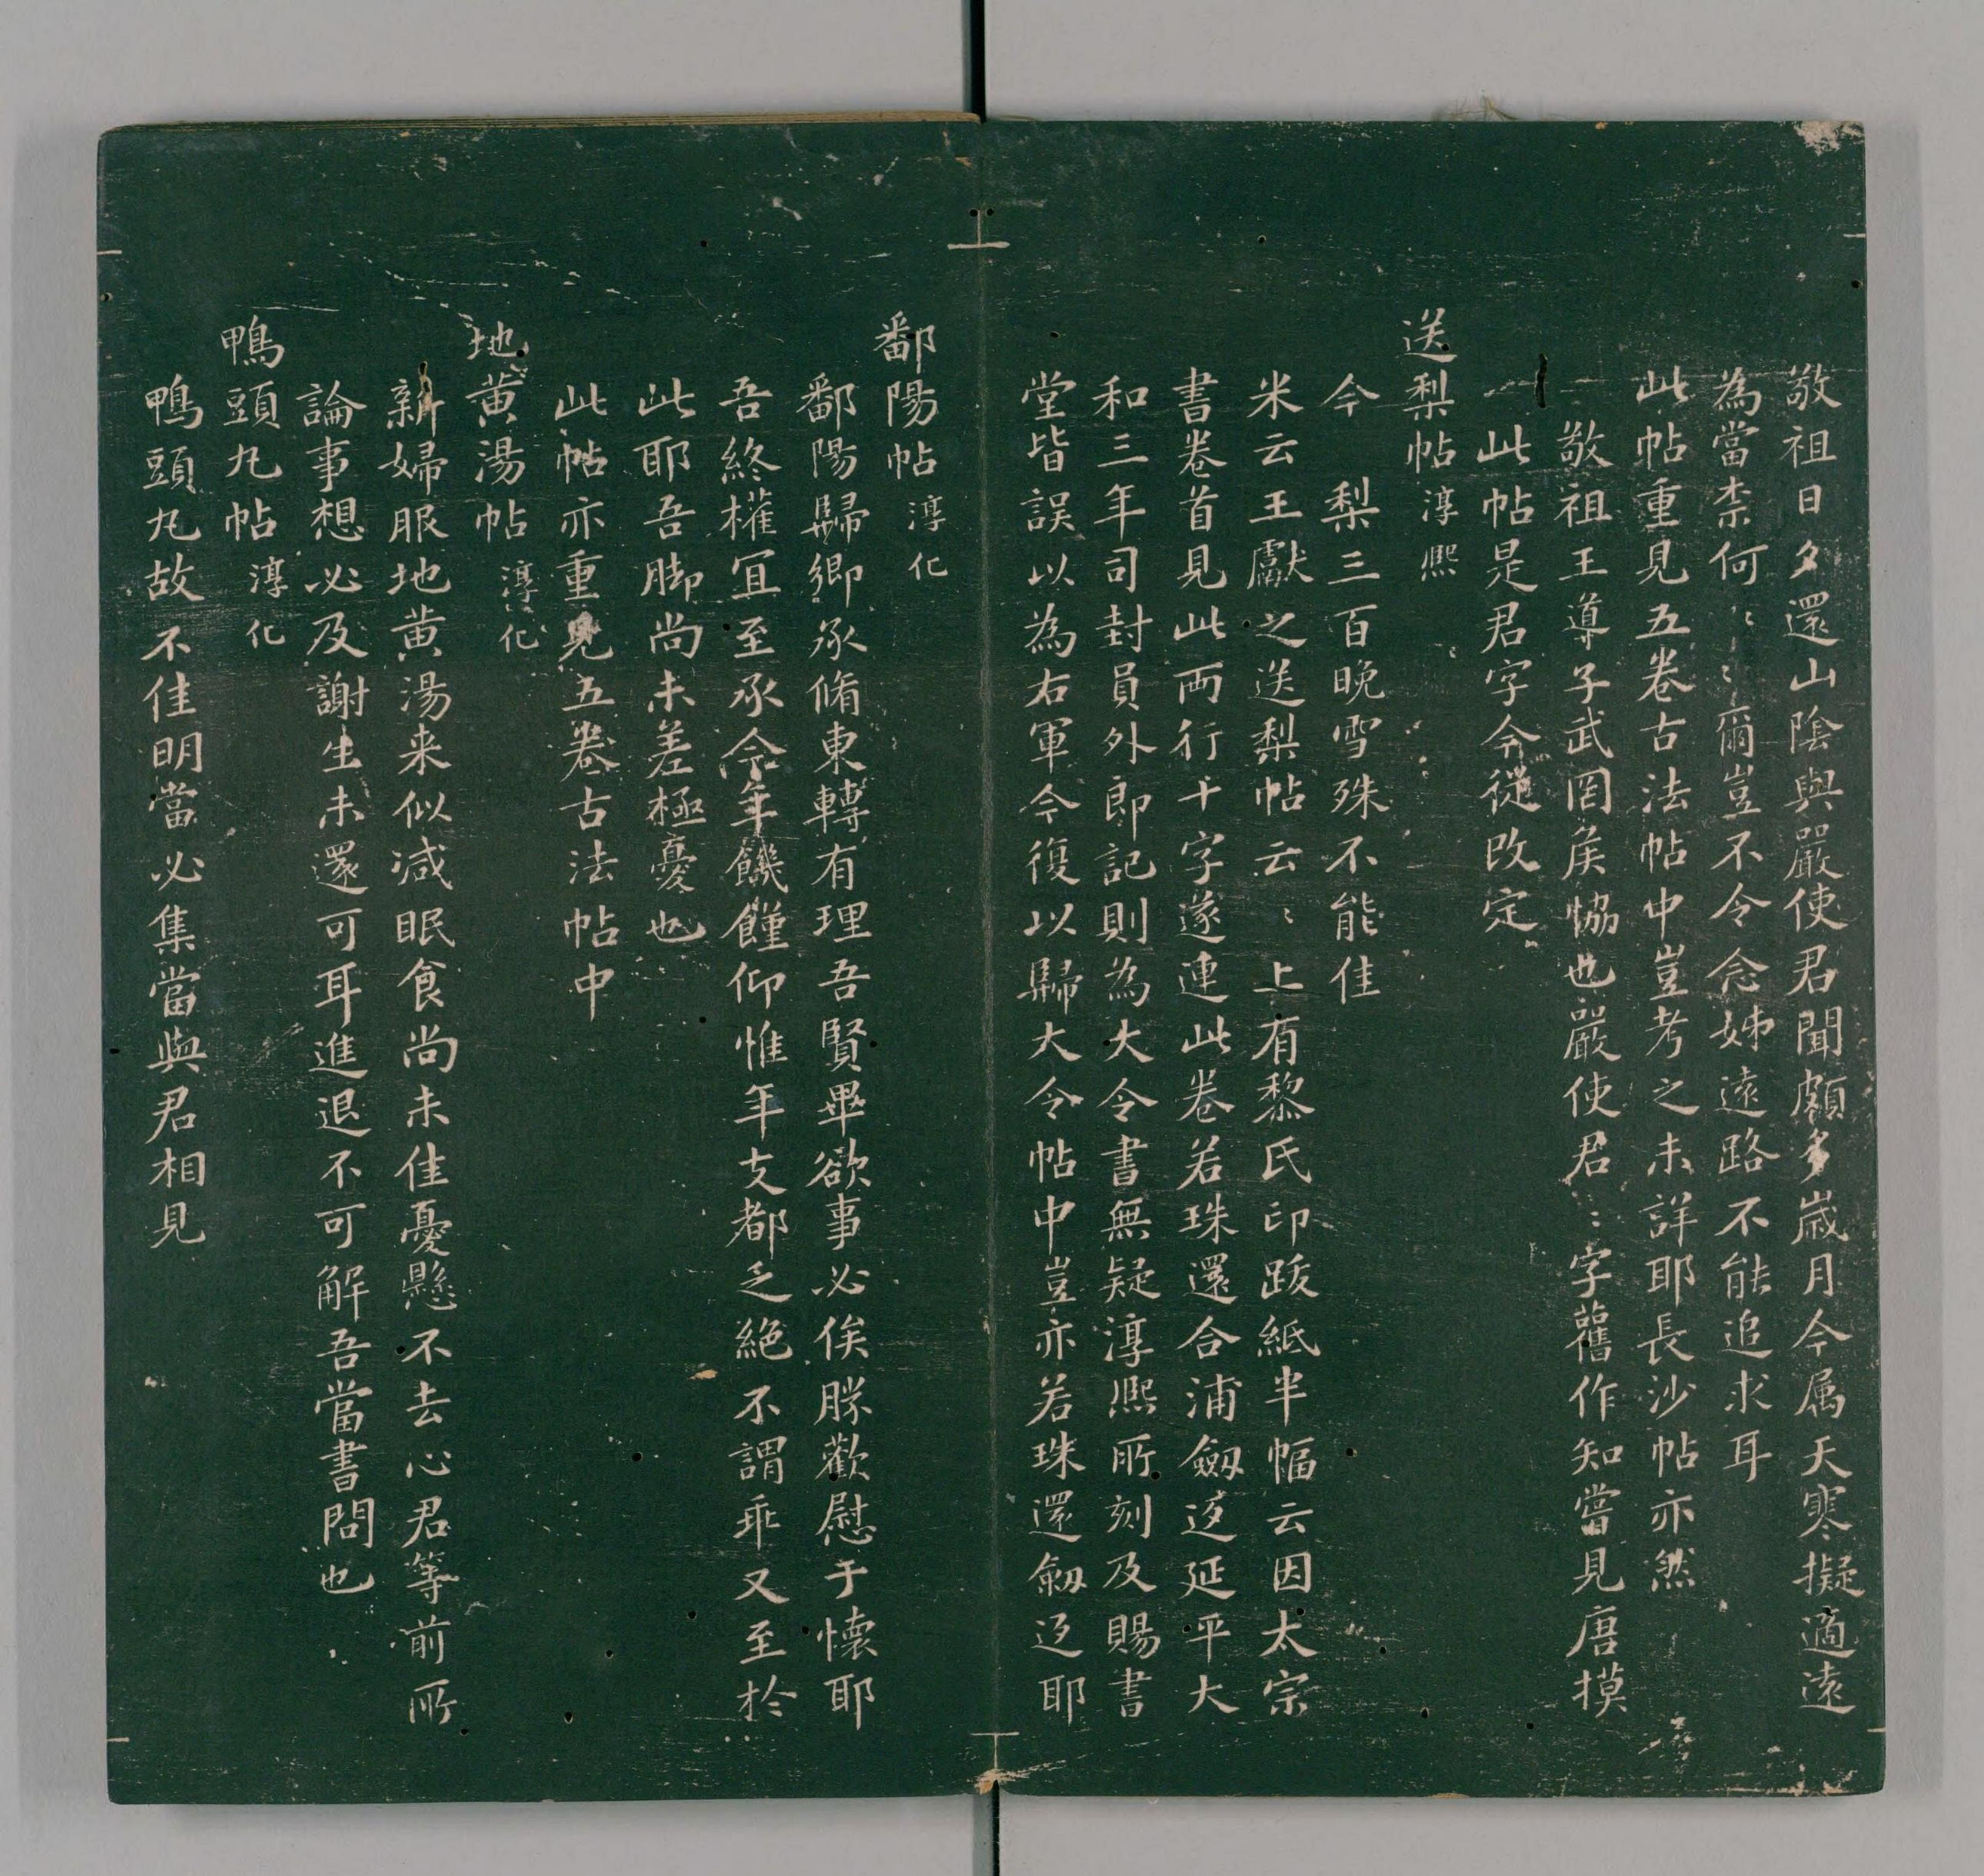 敬祖日夕還山陰與嚴使君聞頗多歲月今属天寒擬適遠
為當柰何〻〻爾豈不令念姊遠路不能追求耳
此帖重見五卷古法帖中豈考之未詳耶長沙帖亦然
敬祖王導子武罔矦恊也嚴使君〻字舊作知嘗見唐摸
此帖是君字今從改定
送梨帖淳熙
今 梨三百晚雪殊不能佳
米云王獻之送梨帖云〻上有黎氏印跋紙半幅云因太宗
書卷首見此両行十字遂連此卷若珠還合浦劔迓延平大
和三年司封員外郎記則為大令書無疑淳熙所刻及賜書
堂皆誤以為右軍今復以歸大令帖中豈亦若珠還劔迓耶
鄱陽帖淳化
鄱陽歸鄉承脩東轉有理吾賢畢欲事必俟勝歡慰于懷耶
吾終權冝至承今年饑饉仰惟年支都乏絕不謂乖又至於
此耶吾脚尚未差極憂也
此帖亦重見五卷古法帖中
地黄湯帖淳化
新婦服地黄湯来似减眠食尚未佳憂懸不去心君等前所
論事想必及謝生未還可耳進退不可解吾當書問也
鴨頭丸帖淳化
鴨頭丸故不佳明當必集當與君相見